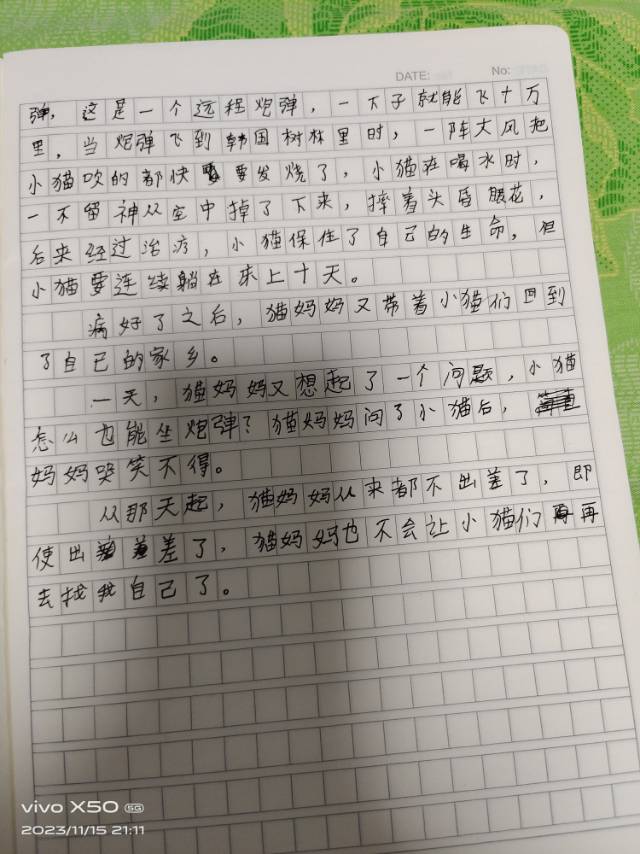 DATE:
No:
弹，这是一个远程炮弹，一下子就能飞十万
里，当炮弹飞到韩国树林里时，一阵大风把
小猫吹的都快要发烧了，小猫在喝水时，
一不留神从空中掉了下来，摔着头昏眼花，
后来经过治疗，小猫保住了自己的生命，但
小猫要连续躺在床上十天。
病好了之后，猫妈妈又带着小猫们回到
了自己的家乡。
一天，猫妈妈又想起了一个问题，小猫
怎么也能坐炮弹？猫妈妈问了小猫后，
妈妈哭笑不得。
从那天起，猫妈妈从来都不出差了，即
使出差了，猫妈妈也不会让小猫们再
去找自己了。
vivo X50 5G
2023/11/15 21:11